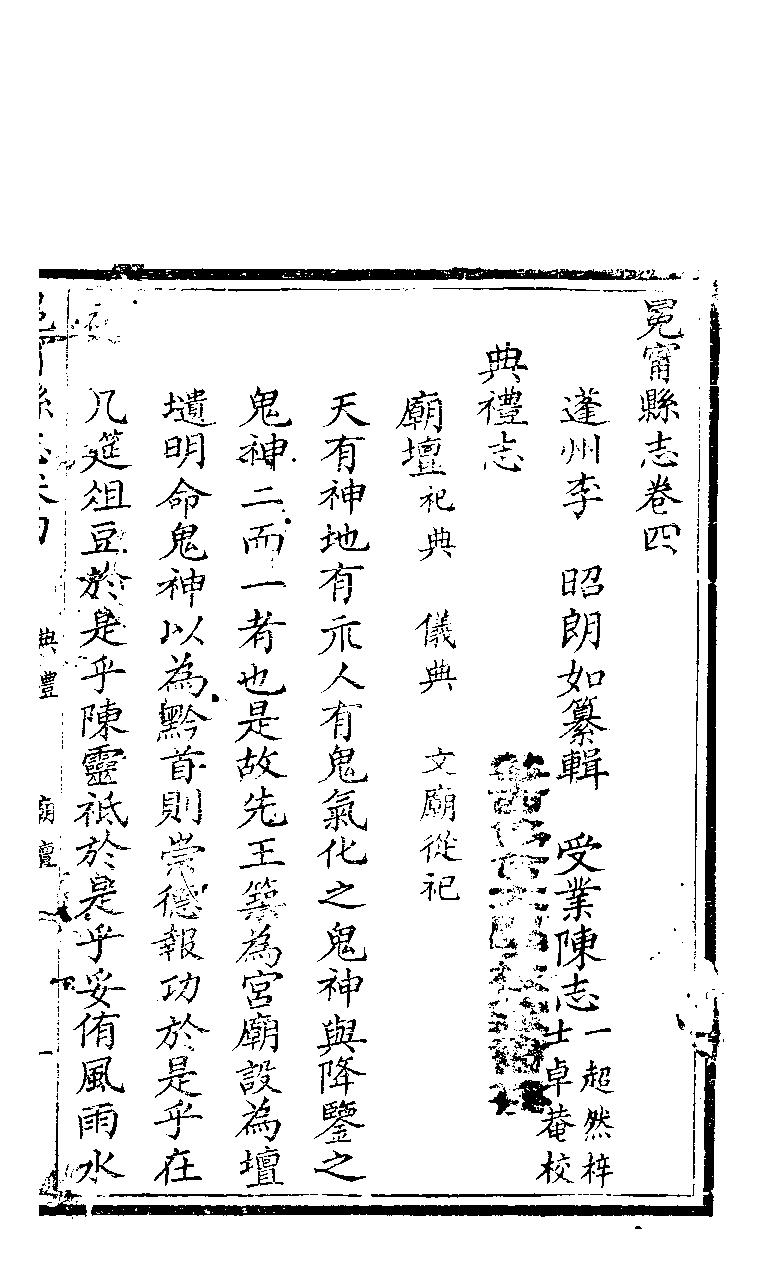 冕甯縣志卷四
蓬州李　昭朗如纂輯　受業陳志一超然梓士卓菴校
典禮志
廟壇祀典　儀典　文廟從祀
天有神地有示人有鬼氣化之鬼神與降鑒之
鬼神二而一者也是故先王築為宮廟設為壇
壝明命鬼神以為黔首則崇德報功於是乎在
几筵俎豆於是乎陳靈祇於是乎妥侑風雨水
典豊
廟壇